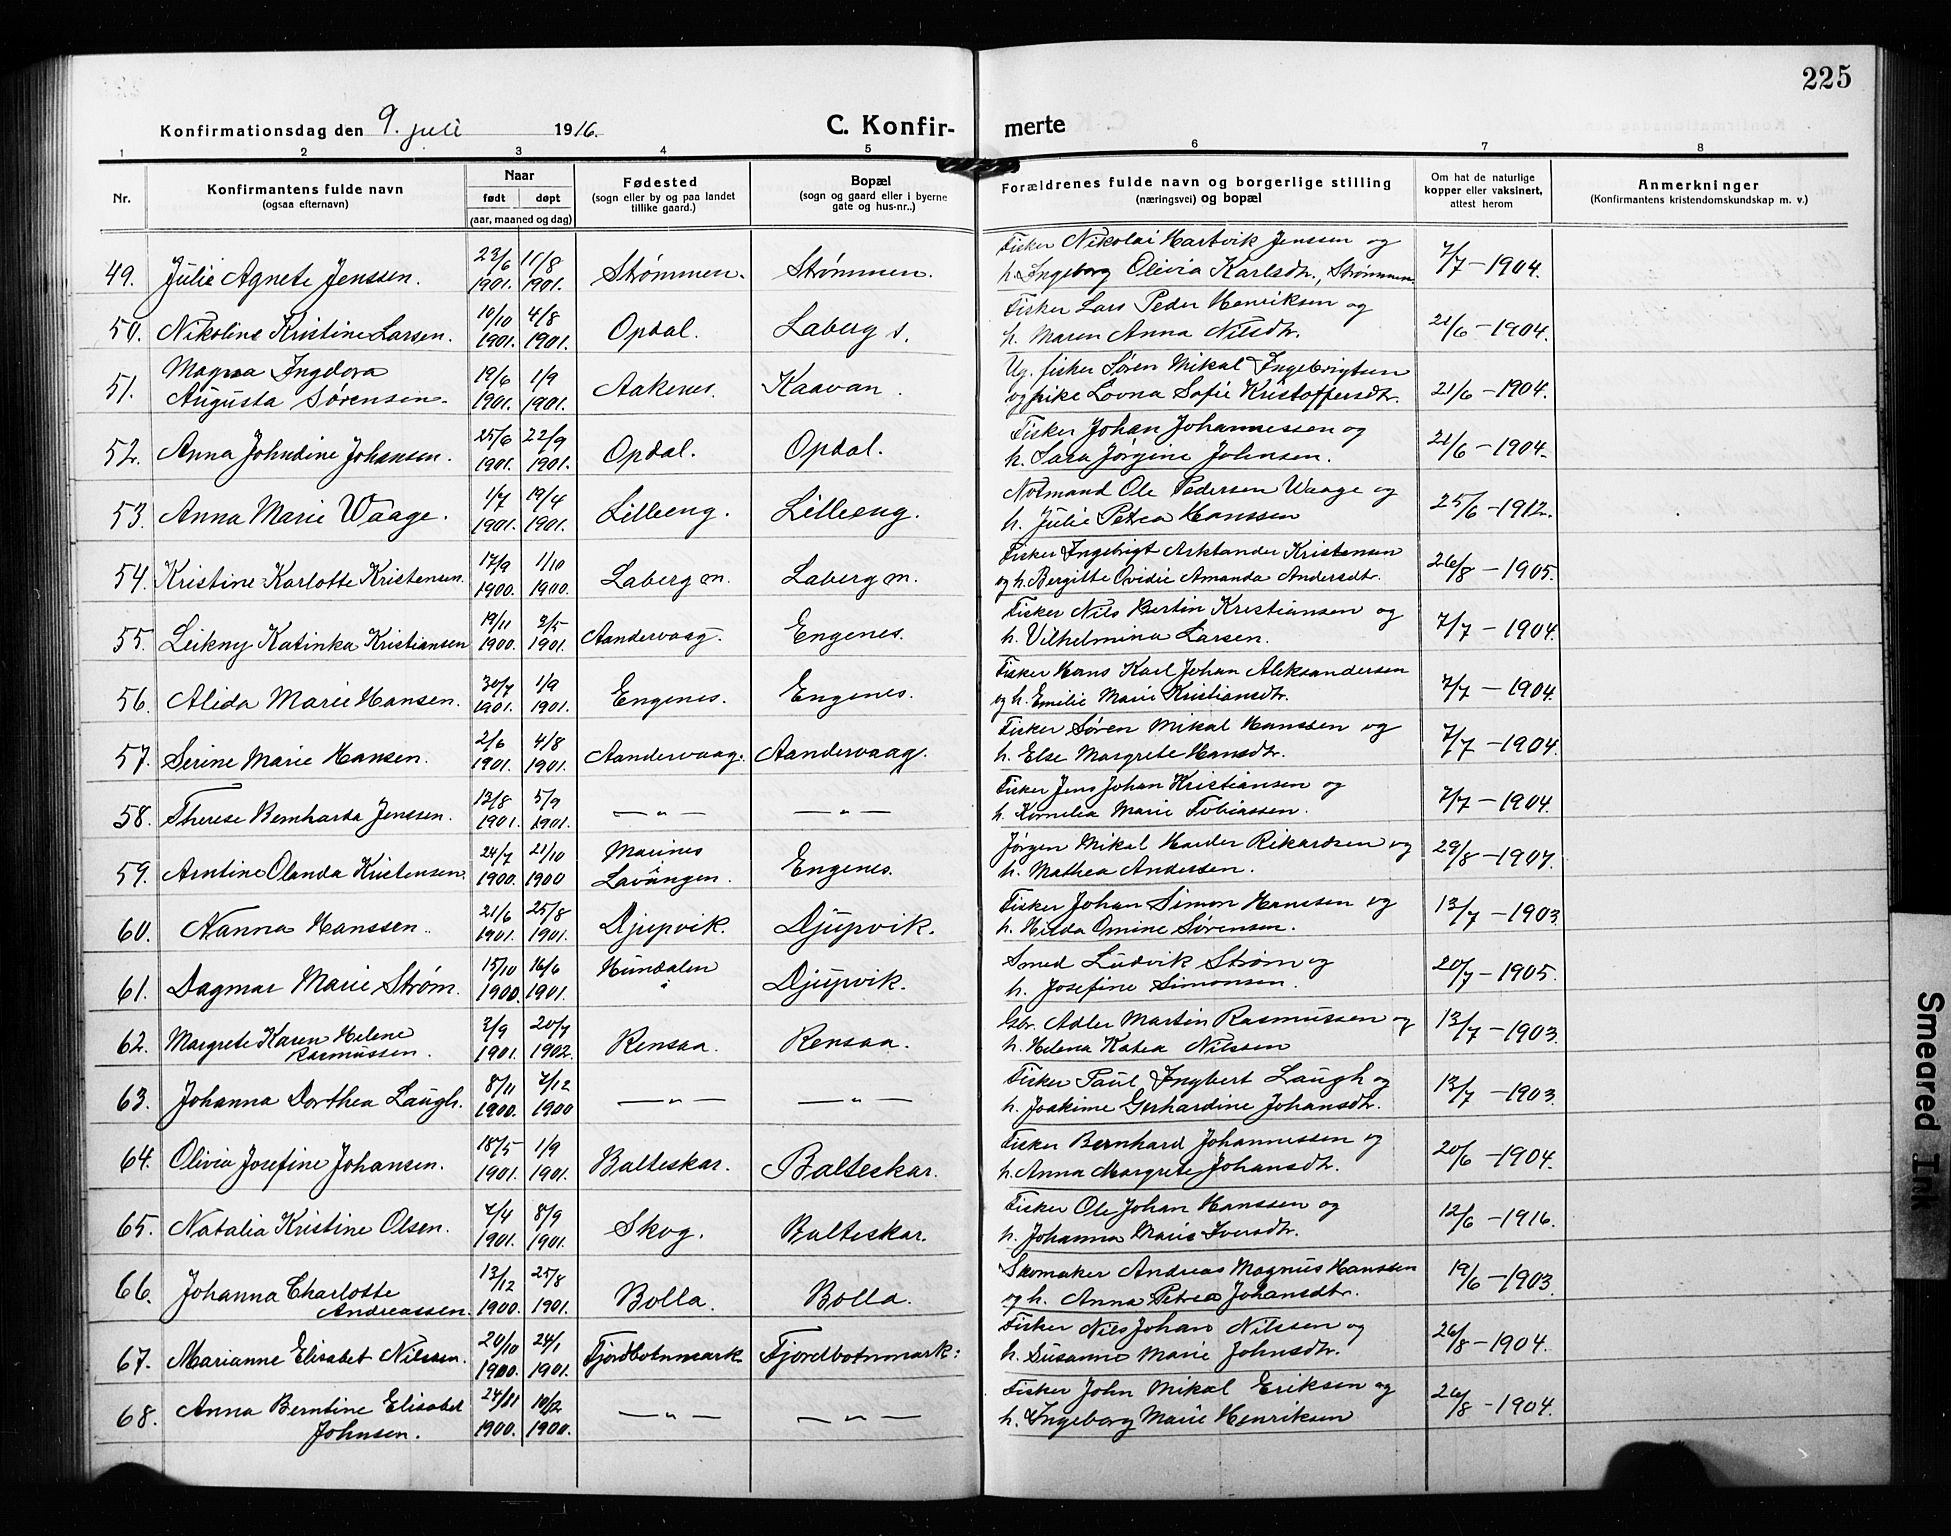 225
Konfirmationsdag den 9. juli 1916.
C. Konfirmerte
1 2 3 4 5 6 7 8
Nr.
Konfirmantens fulde navn
(ogsaa efternavn)
Naar
født døpt
(aar, maaned og dag)
Fødested
(sogn eller by og paa landet
tillike gaard.)
Bopæl
(sogn og gaard eller i byerne
gate og hus-nr..)
Forældrenes fulde navn og borgerlige stilling
(næringsvei) og bopæl
Om hat de naturlige
kopper eller vaksinert,
attest herom
Anmerkninger
(Konfirmantens kristendomskundskap m. v.)
49. Julie Agnete Jenssen. 22/6 1901. 11/8 1901. Strømmen. Strømmen. Fisker Nikolai Hartvik Jenssen og
h. Ingeborg Olivia Karlsdtr., Strømmen. 7/7 - 1904.
50. Nikoline Kristine Larsen. 10/10 1901. 4/8 1901. Opdal. Laberg s. Fisker Lars Peder Henriksen og
h. Maren Anna Nilsdtr. 21/6 - 1904.
51. Magna Ingdora
Augusta Sørensen. 19/6 1901. 1/9 1901. Aakenes. Kaavan. Ug. fisker Søren Mikal Ingebrigtsen
og pike Lovna Sofie Kristoffersdtr. 21/6 - 1904.
52. Anna Johndine Johansen. 25/6 1901. 22/9 1901. Opdal. Opdal. Fisker Johan Johannessen og
h. Sara Jørgine Johnsen. 21/6 - 1904.
53. Anna Marie Waage. 1/7 1901. 19/4 1901. Lilleeng. Lilleeng. Notmand Ole Pedersen Waage og
h. Julie Petrea Hanssen 25/6 - 1912.
54. Kristine Karlotte Kristensen. 17/9 1900. 1/10 1900. Laberg m. Laberg m. Fisker Ingebrigt Arktander Kristensen
og h. Bergitte Ovidie Amanda Andersdtr. 26/8 - 1905.
55. Leikny Katinka Kristiansen 19/11 1900. 2/5 1901. Aandervaag. Engenes. Fisker Nils Bertin Kristiansen og
h. Vilhelmina Larsen. 7/7 - 1904.
56. Alida Marie Hansen. 30/7 1901. 1/9 1901. Engenes. Engenes. Fisker Hans Karl Johan Aleksandersen
og h. Emilie Marie Kristiansdtr. 7/7 - 1904.
57. Serine Marie Hansen. 2/6 1901. 4/8 1901. Aandervaag. Aandervaag. Fisker Søren Mikal Hanssen og
h. Else Margrete Hansdtr. 7/7 - 1904.
58. Therese Bernharda Jenssen. 13/8 1901. 5/9 1901. — „ — — „ — Fisker Jens Johan Kristiansen og
h. Kornelia Marie Tobiassen. 7/7 - 1904.
59. Arntine Olanda Kristensen. 24/7 1900. 21/10 1900 Marines
i Lavangen. Engenes. Jørgen Mikal Harder Rikardsen og
h. Mathea Andersen. 29/8 - 1907.
60. Nanna Hanssen. 21/6 1901. 25/8 1901. Djupvik. Djupvik. Fisker Johan Simon Hanssen og
h. Hilda Omine Sørensen. 13/7 - 1903.
61. Dagmar Marie Strøm. 15/10 1900. 16/6 1901. Hundalen Djupvik. Smed Ludvik Strøm og
h. Josefine Simonsen. 20/7 - 1905.
62. Margrete Karen Helene
Rasmussen. 2/9 1901. 20/7 1902. Rensaa. Rensaa. Gbr. Adler Martin Rasmussen og
h. Helena Katea Nilssen 13/7 - 1903.
63. Johanna Dorthea Laugh. 8/11 1900. 7/12 1900 — „ — — „ — Fisker Paul Ingbert Laugh og
h. Joakime Gerhardine Johansdtr. 13/7 - 1903.
64. Olivia Josefine Johansen. 18/5 1901. 1/9 1901. Balteskar. Balteskar. Fisker Bernhard Johannessen og
h. Anna Margrete Johansdtr. 20/6 - 1904.
65. Natalia Kristine Olsen. 7/4 1901. 8/9 1901. Skog. Balteskar. Fisker Ole Johan Hanssen og
h. Johanna Marie Iversdtr. 12/6 - 1916.
66. Johanna Charlotte
Andreassen. 13/12 1900. 25/8 1901. Bolla. Bolla. Skomaker Andreas Magnus Hanssen
og h. Anna Petrea Johansdtr. 19/6 - 1903.
67. Marianne Elisabet Nilssen. 20/10 1900. 24/1 1901. Fjordbotnmark Fjordbotnmark. Fisker Nils Johan Nilssen og
h. Susanne Marie Johnsdtr. 26/8 - 1904.
68. Anna Berntine Elisabet
Johnsen. 24/11 1900. 10/12 1900. — „ — — „ — Fisker John Mikal Eriksen og
h. Ingeborg Marie Henriksen 26/8 - 1904.
Smeared Ink